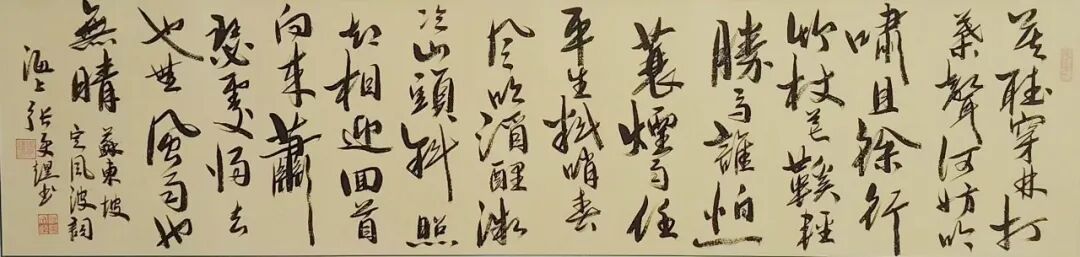 莫聽穿林打
葉聲何妨吟
嘯且徐行
竹杖芒鞵輕
勝馬誰怕一
蓑煙雨任
平生料峭春
風吹酒醒微
冷山頭斜照
却相迎回首
向來蕭
瑟處歸去
也無風雨也
無晴
蘇東坡
定風波詞
海上張書